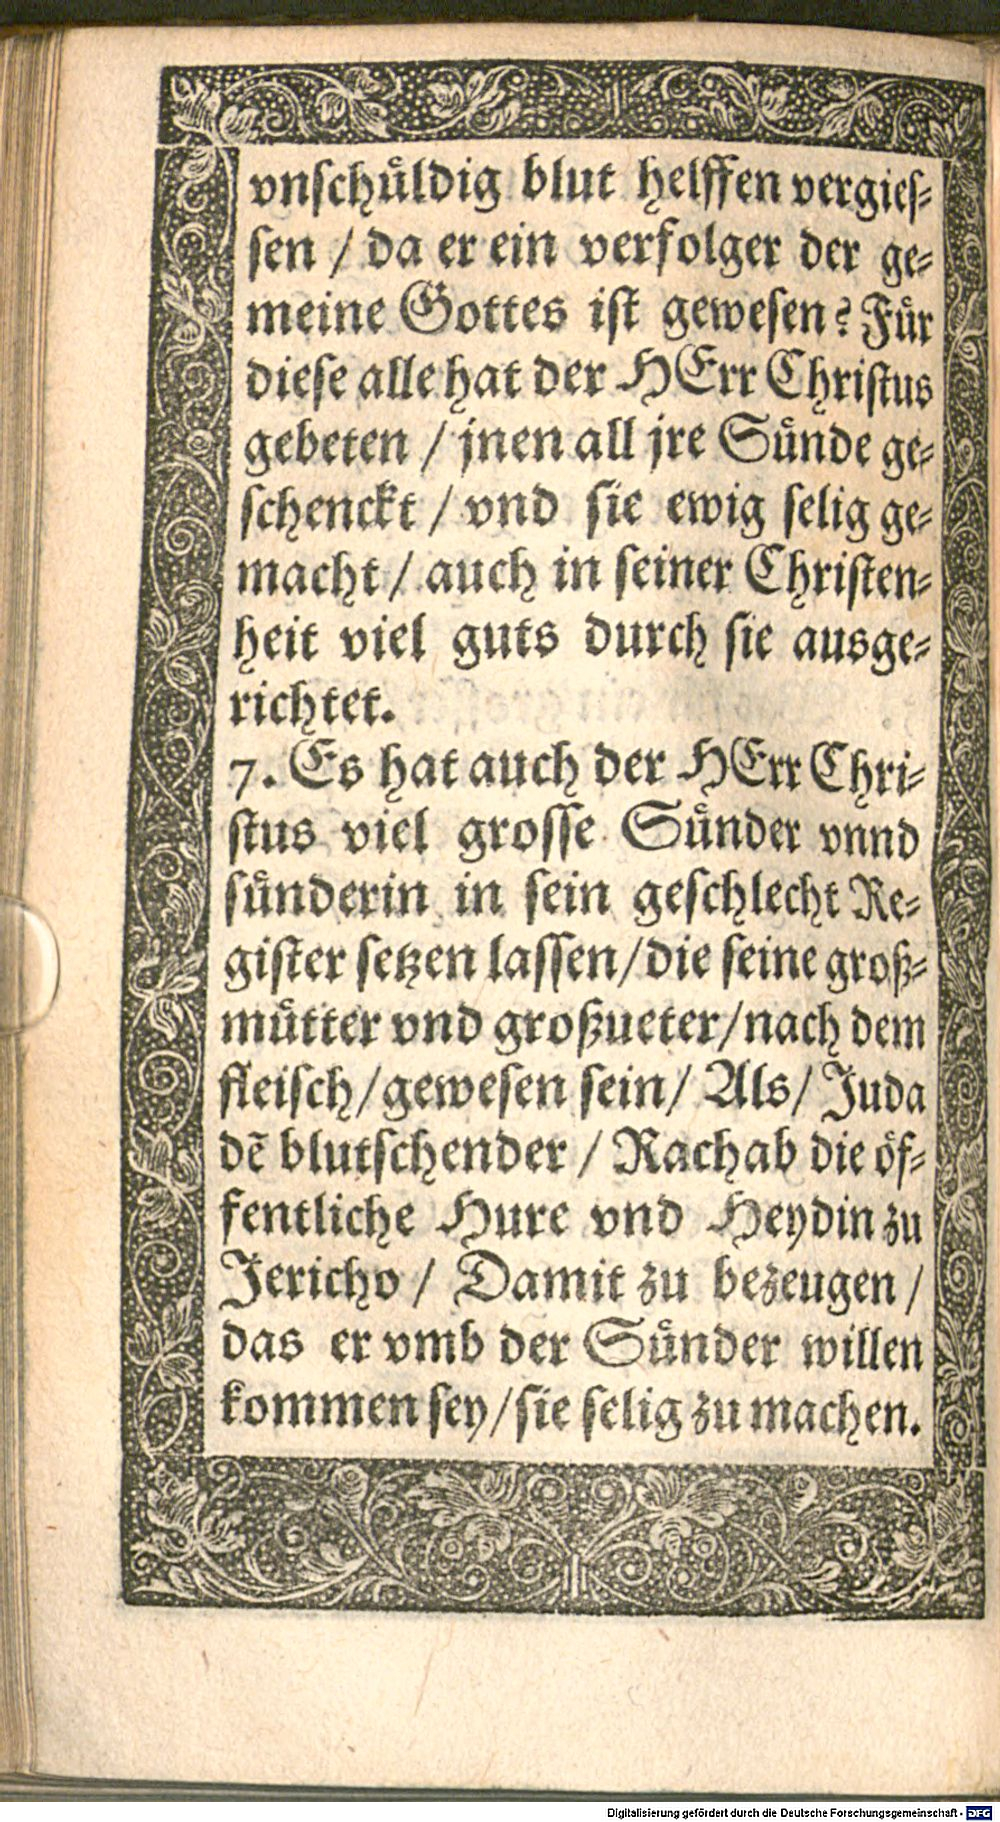 vnschuͤldig blut helffen vergies⸗
sen / da er ein verfolger der ge⸗
meine Gottes ist gewesen? Fuͤr
diese alle hat der HErr Christus
gebeten / jnen all jre Suͤnde ge⸗
schenckt / vnd sie ewig selig ge⸗
macht / auch in seiner Christen⸗
heit viel guts durch sie ausge⸗
richtet.
7. Es hat auch der HErr Chri⸗
stus viel grosse Suͤnder vnnd
suͤnderin in sein geschlecht Re⸗
gister setzen lassen / die seine groß⸗
muͤtter vnd großueter / nach dem
fleisch / gewesen sein / Als / Juda
dē blutschender / Rachab die oͤf⸗
fentliche Hure vnd Heydin zu
Jericho / Damit zu bezeugen /
das er vmb der Suͤnder willen
kommen sey / sie selig zu machen.
Digitalisierung gefördert durch die Deutsche Forschungsgemeinschaft - DFG